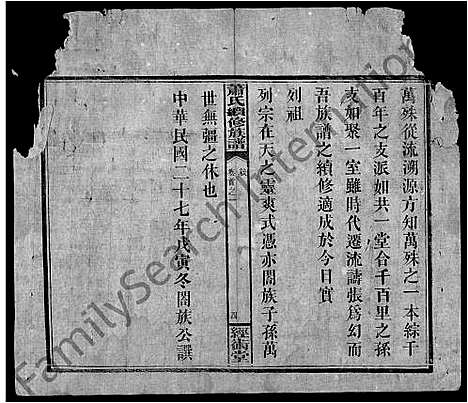 萬殊從流溯源方知萬殊之一本綜千
百年之支派如共一堂合千百里之孫
支如聚一室雖時代遷流譸張為幻而
吾族譜之續修適成於今日實
列祖
列宗在天之靈爽式憑亦閤族子孫萬
蕭氏續修族譜
卷首之一
四
經術堂
世無疆之休也
中華民國二十七年戊寅冬閤族公譔
FamilySearch International